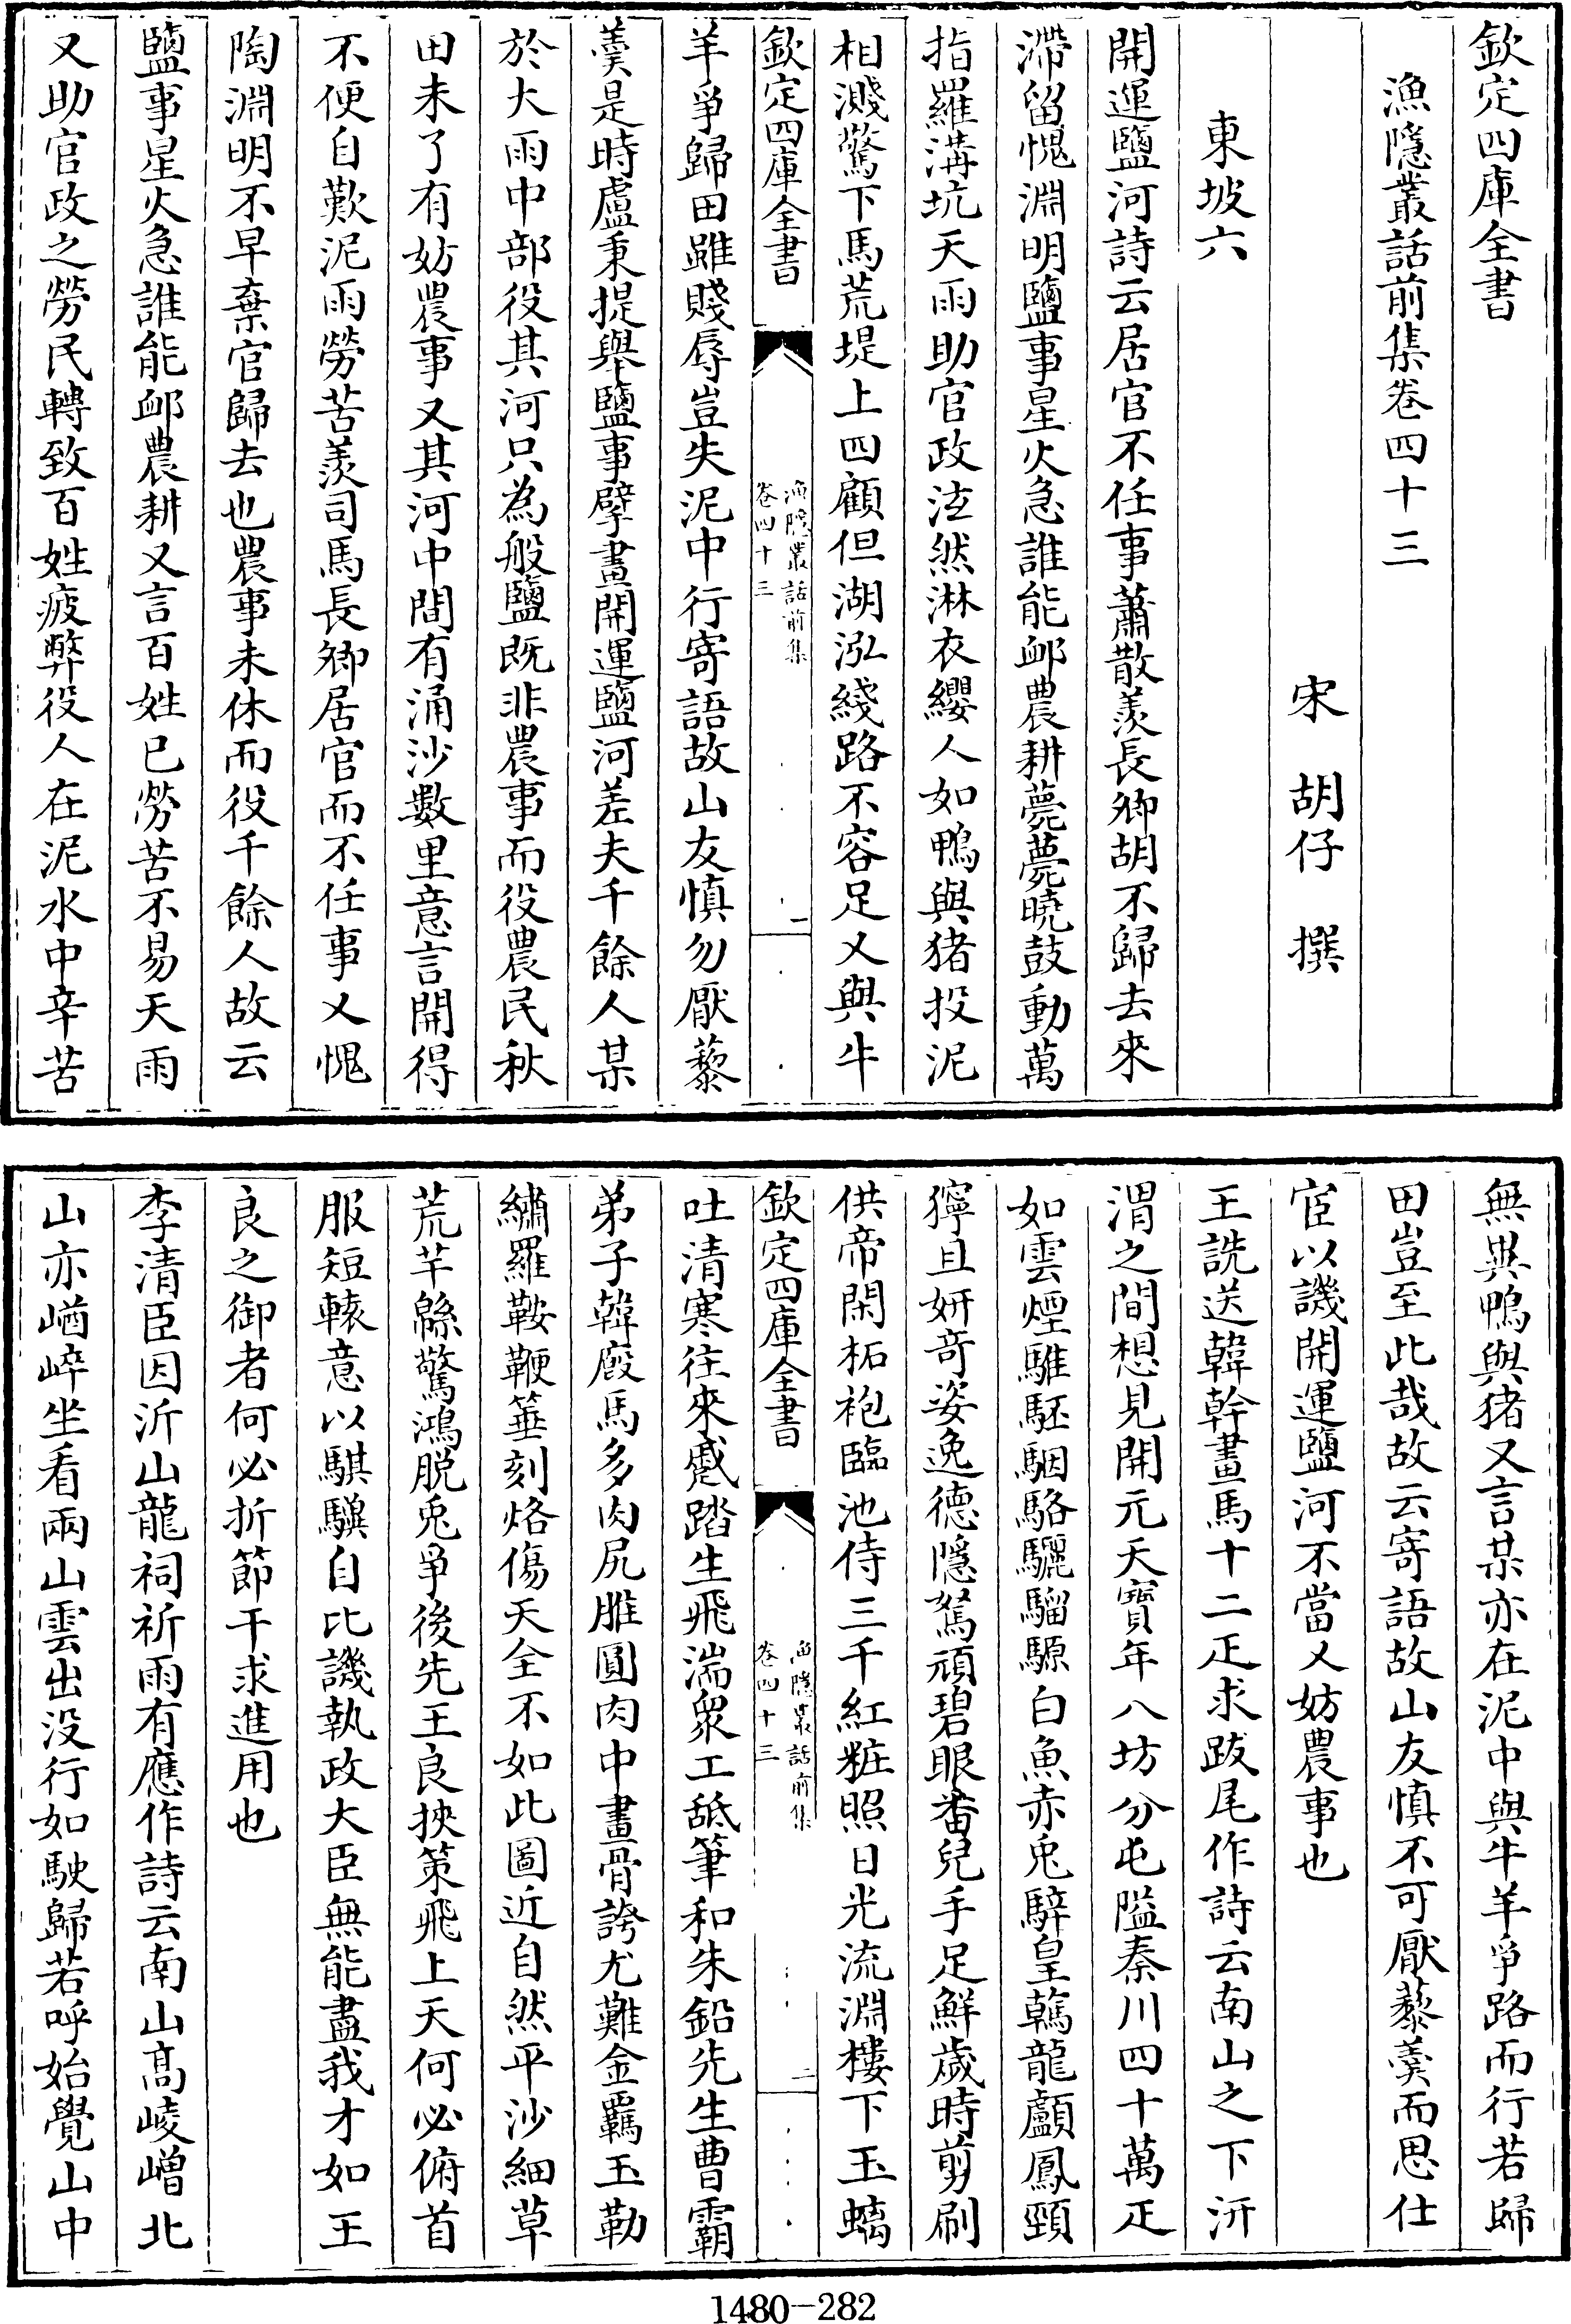 欽定四庫全書
漁隱叢話前集卷四十三
宋 胡仔 撰
東坡六
開運鹽河詩云居官不任事蕭散羨長卿胡不歸去來
滯留愧淵明鹽事星火急誰能衈農耕薨薨曉鼓動萬
指羅溝坑天雨助官政泫然淋衣纓人如鴨與猪投泥
相濺驚下馬荒堤上四顧但湖泓綫路不容足又與牛
欽定四庫全書
漁隱叢話前集
卷四十三
一
羊爭歸田雖賤辱豈失泥中行寄語故山友慎勿厭藜
羹是時盧秉提舉鹽事擘畫開運鹽河差夫千餘人某
於大雨中部役其河只為般鹽既非農事而役農民秋
田未了有妨農事又其河中間有涌沙數里意言開得
不便自歎泥雨勞苦羨司馬長卿居官而不任事又愧
陶淵明不早棄官歸去也農事未休而役千餘人故云
鹽事星火急誰能衈農耕又言百姓已勞苦不易天雨
又助官政之勞民轉致百姓疲弊役人在泥水中辛苦
無異鴨與猪又言某亦在泥中與牛羊爭路而行若歸
田豈至此哉故云寄語故山友慎不可厭藜羹而思仕
宦以譏開運鹽河不當又妨農事也
王詵送韓幹畫馬十二疋求跋尾作詩云南山之下汧
渭之間想見開元天寶年八坊分屯隘秦川四十萬疋
如雲煙騅駓駰駱驪騮騵白魚赤兎騂皇䮧龍顱鳳頸
獰且妍奇姿逸德隱駑頑碧眼番兒手足鮮歲時剪刷
供帝閑柘袍臨池侍三千紅粧照日光流淵樓下玉螭
欽定四庫全書
漁隱叢話前集
卷四十三
二
吐清寒往來蹙踏生飛湍衆工舐筆和朱鉛先生曹霸
弟子韓廄馬多肉尻脽圓肉中畫骨誇尤難金羈玉勒
繡羅鞍鞭箠刻烙傷天全不如此圖近自然平沙細草
荒芊緜驚鴻脱兎爭後先王良挾策飛上天何必俯首
服短轅意以騏驥自比譏執政大臣無能盡我才如王
良之御者何必折節干求進用也
李清臣因沂山龍祠祈雨有應作詩云南山高崚嶒北
山亦崷崪坐看兩山雲出没行如駛歸若呼始覺山中
1480-282